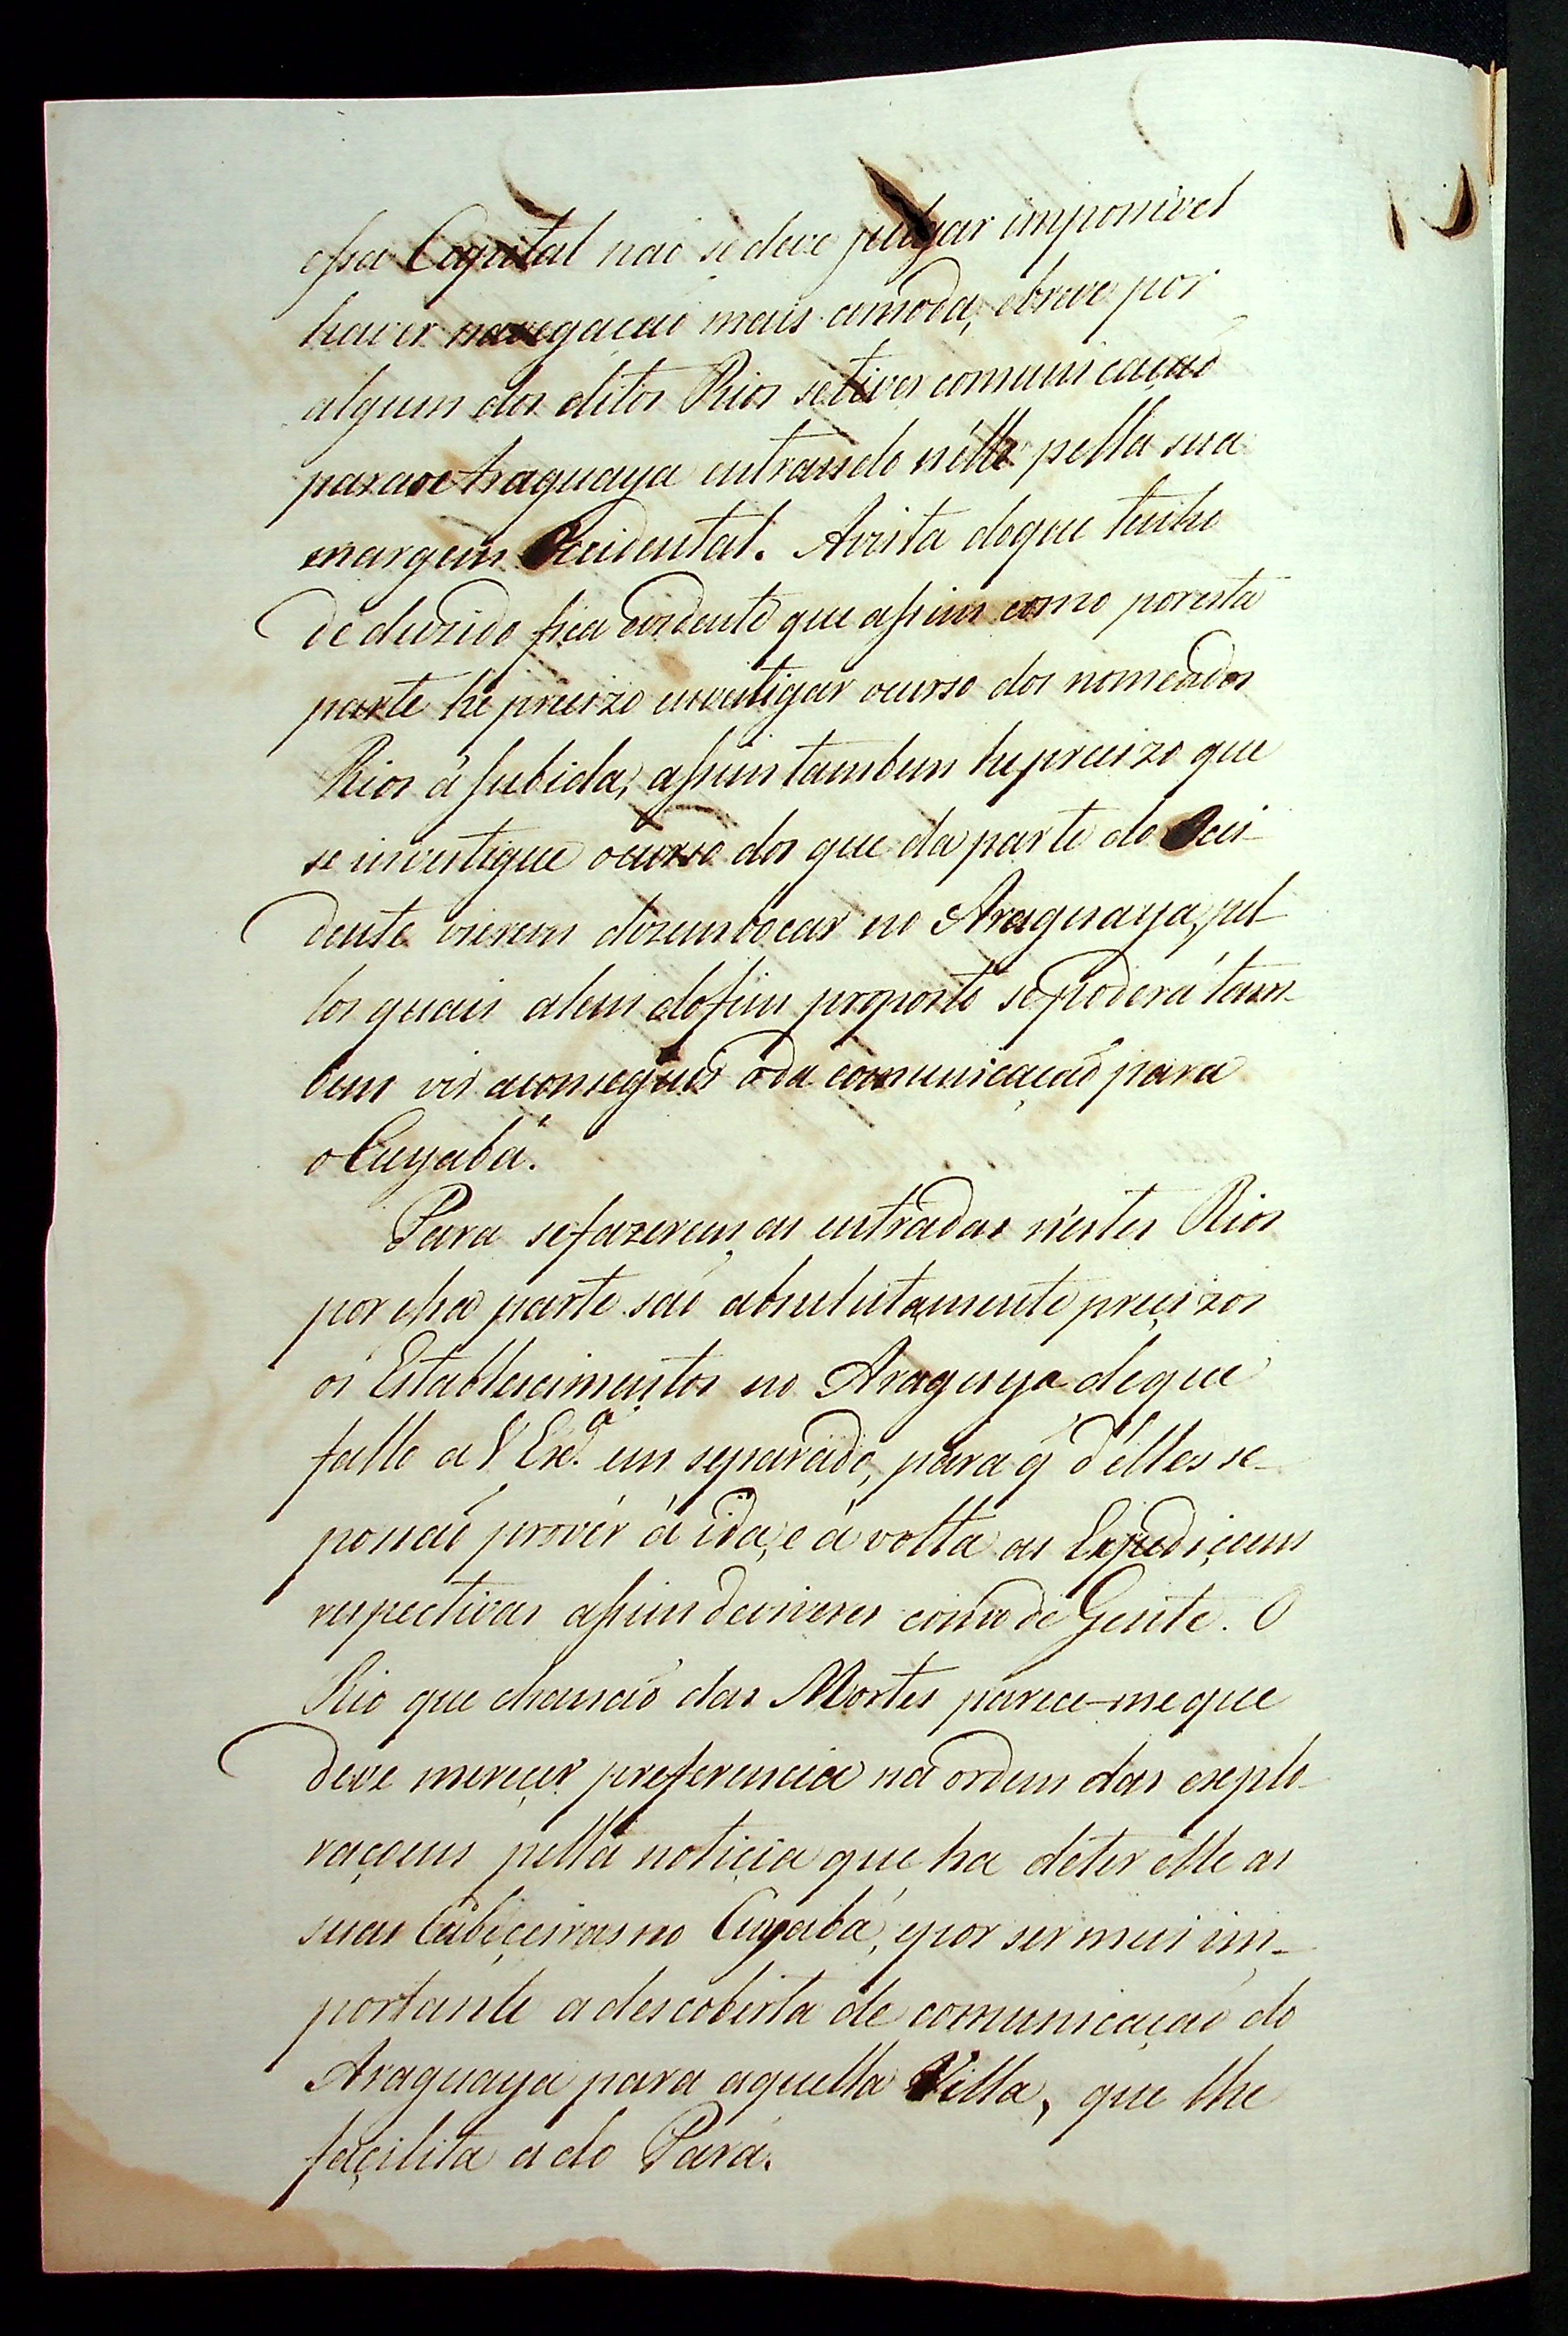 essa Capital naõ se deve julgar imposivel
haver navegaçaõ mais cõmoda, ebreve por
algum dos ditos Rios setiver comunicaçaõ
parao Araguaya entrando n'élle pella sua
margem Occidental. Avista doque tenho
deduzido fica evidente que assim como poresta
parte hé precizo envestigar ocurso dos nomeados
Rios á subida, assim tambem he precizo que
se investigue ocurso dos que da parte do Occi-
dente vierem dezembocar no Araguaya, pel-
los quais alem dofim proposto sepoderá tam-
bem vir aconseguir oda comunicaçaõ para
o Cuyabá.
Para sefazerem as entradas n'estes Rios
por essa parte saõ absulutamente precizos
os Establescimentos no Araguya deque
fallo a V Ex.ª em separado, para q̃ d'élles se-
possaõ provêr á ida, e á volta as Expediçoens
respectivas assim deviveres como de Gente. O
Rio que chamaõ das Mortes parece-me que
deve mereçer preferencia na ordem das explo-
raçoens pella noticia que ha deter elle as
suas Cabeçeiras no Cuyabá, epor ser mui im-
portante adescoberta de comunicaçaõ do
Araguaya para aquella Villa, que lhe
façilita a do Pará.